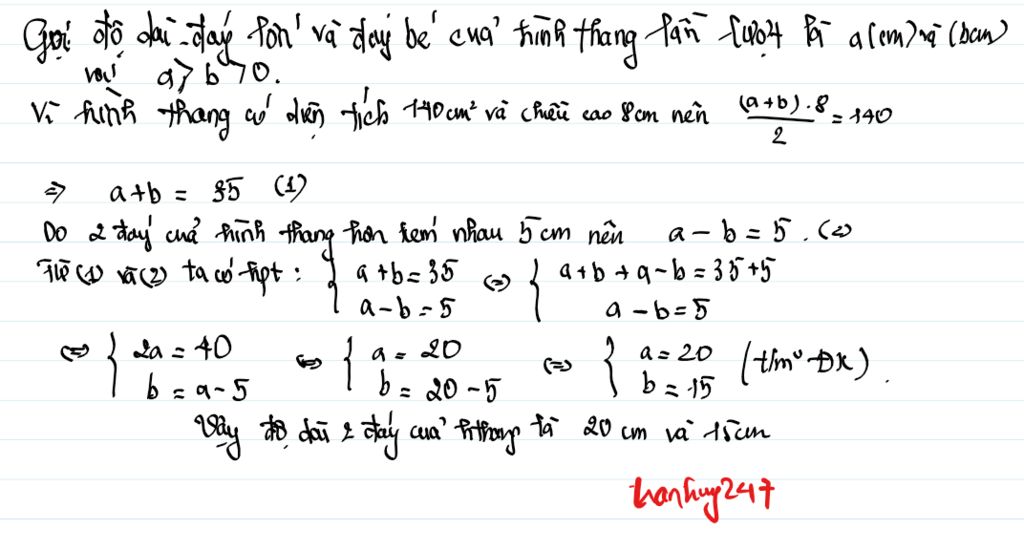 Gọi độ dài đáy lớn và đáy bé của hình thang lần lượt là a(cm) và (bcm)
với a > b > 0.
Vì hình thang có diện tích 140cm² và chiều cao 8cm nên (a+b).8/2 = 140
=> a+b = 35 (1)
Do 2 đáy của hình thang hơn kém nhau 5cm nên a - b = 5. (2)
Từ (1) và (2) ta có hpt: { a+b = 35 <=> { a+b+a-b = 35+5
a-b = 5 a-b = 5
<=> { 2a = 40 <=> { a = 20 <=> { a = 20 (t/m ĐK).
b = a-5 b = 20-5 b = 15
Vậy độ dài 2 đáy của hthang là 20 cm và 15cm
thanhuy247